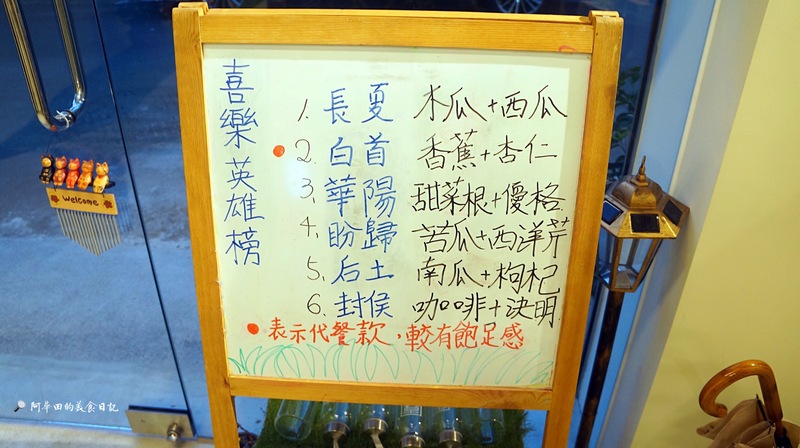 喜樂英雄榜
1. 長夏 木瓜+西瓜
2. 白首 香蕉+杏仁
3. 華陽 甜菜根+優格
4. 盼歸 苦瓜+西洋芹
5. 后土 南瓜+枸杞
6. 封侯 咖啡+決明
表示代餐款，較有飽足感
Welcome
阿草田的美食日記